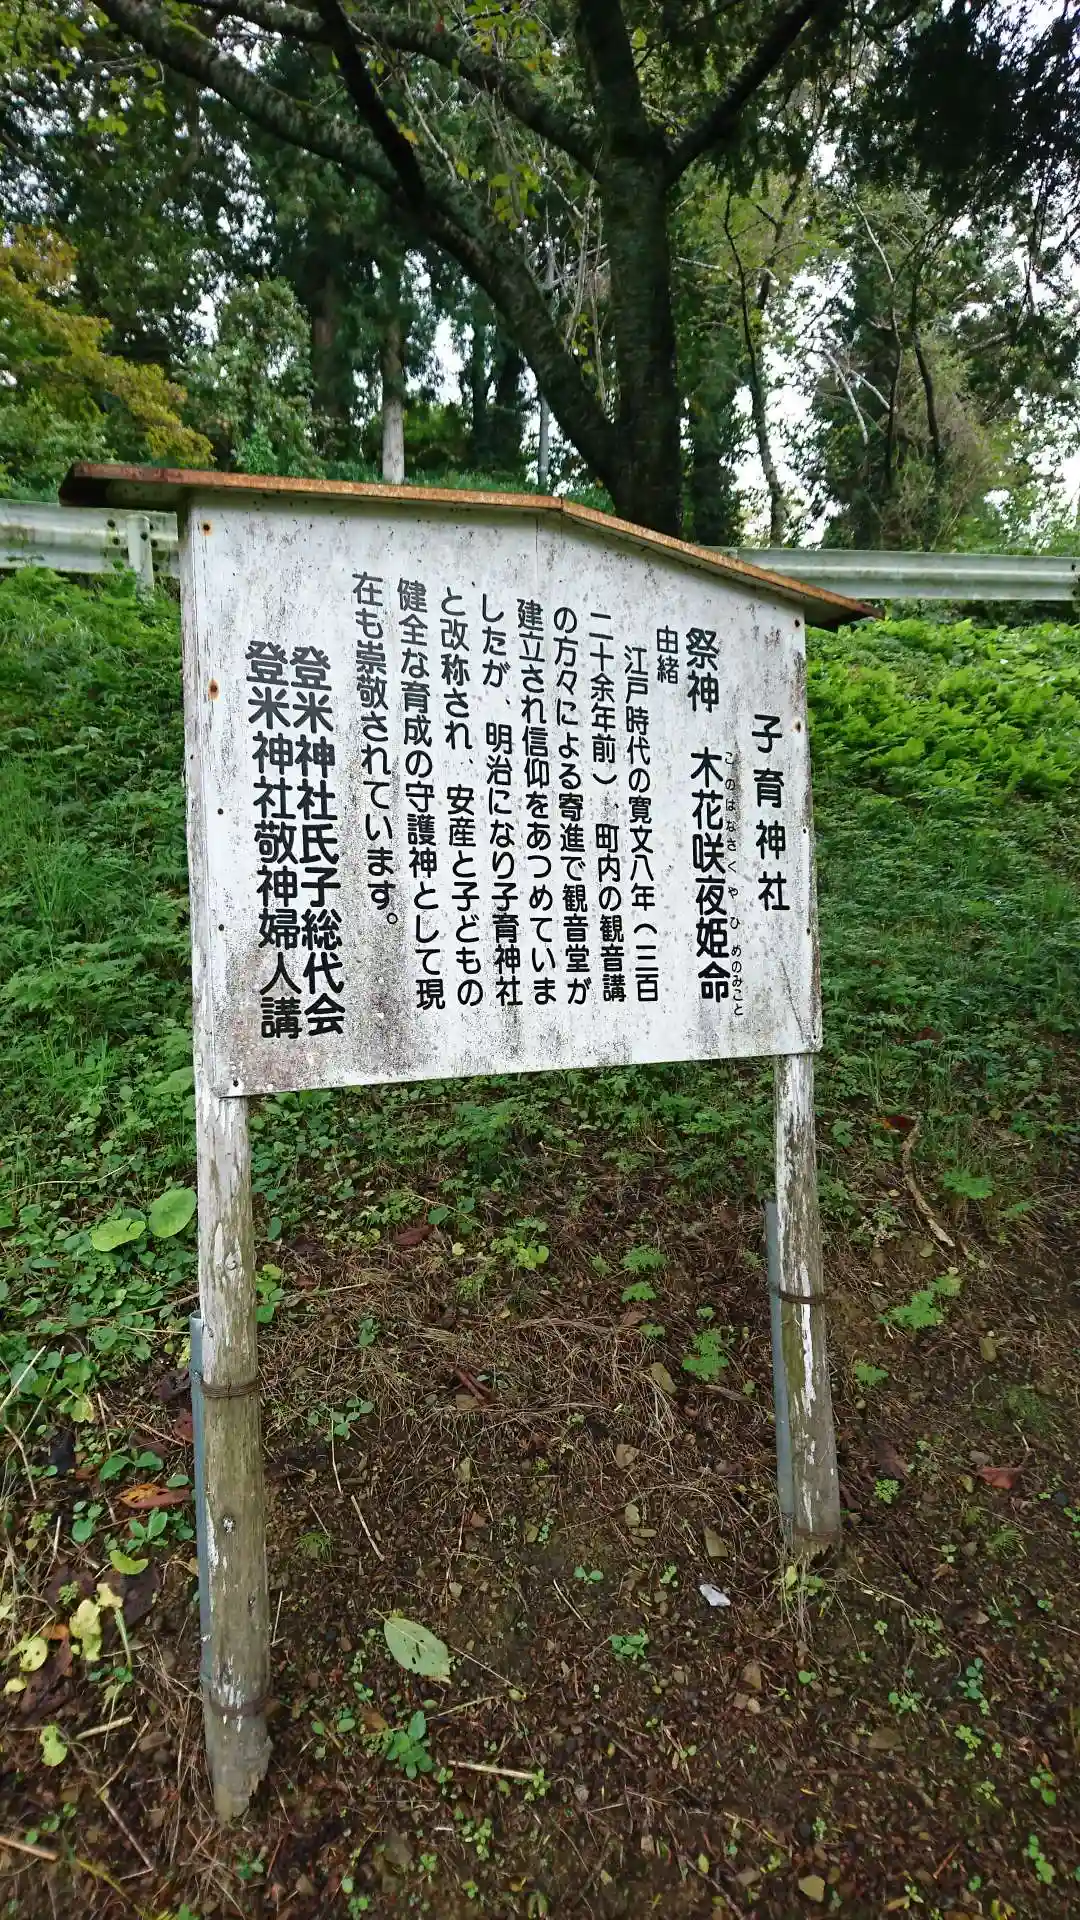 子育神社
祭神 木花咲夜姫命
このはなさくやひめのみこと
由緒
江戸時代の寛文八年(三百
二十余年前)、町内の観音講
の方々による寄進で観音堂が
建立され信仰をあつめていま
したが、明治になり子育神社
と改称され、安産と子どもの
健全な育成の守護神として現
在も崇敬されています。
登米神社氏子総代会
登米神社敬神婦人講